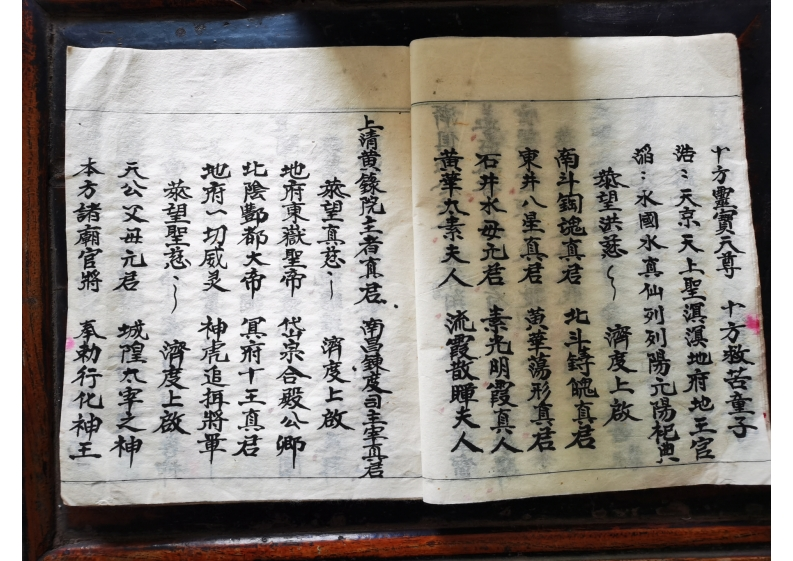 十方靈寶天尊 十方救苦童子
浩〻天京天上聖溟滇地府地王官
滔〻水國水真仙列列陽元陽祀典
恭望洪慈〻 濟度上啟
南斗鍧魂真君 北斗鑄魄真君
東井八星真君 黃華蕩形真君
石井水母元君 素光明霞真人
黃華九素夫人 流霞散暉夫人
上清黄籙院王者真君 南昌鍊度司主宰真君
恭望真慈〻 濟度上啟
地府東嶽聖帝 岱宗合殿公卿
北陰酆都大帝 冥府十王真君
地府一切威灵 神虎追揖將軍
恭望聖慈〻 濟度上啟
天公父母元君 城隍太宰之神
本方諸廟官將 奉勅行化神王